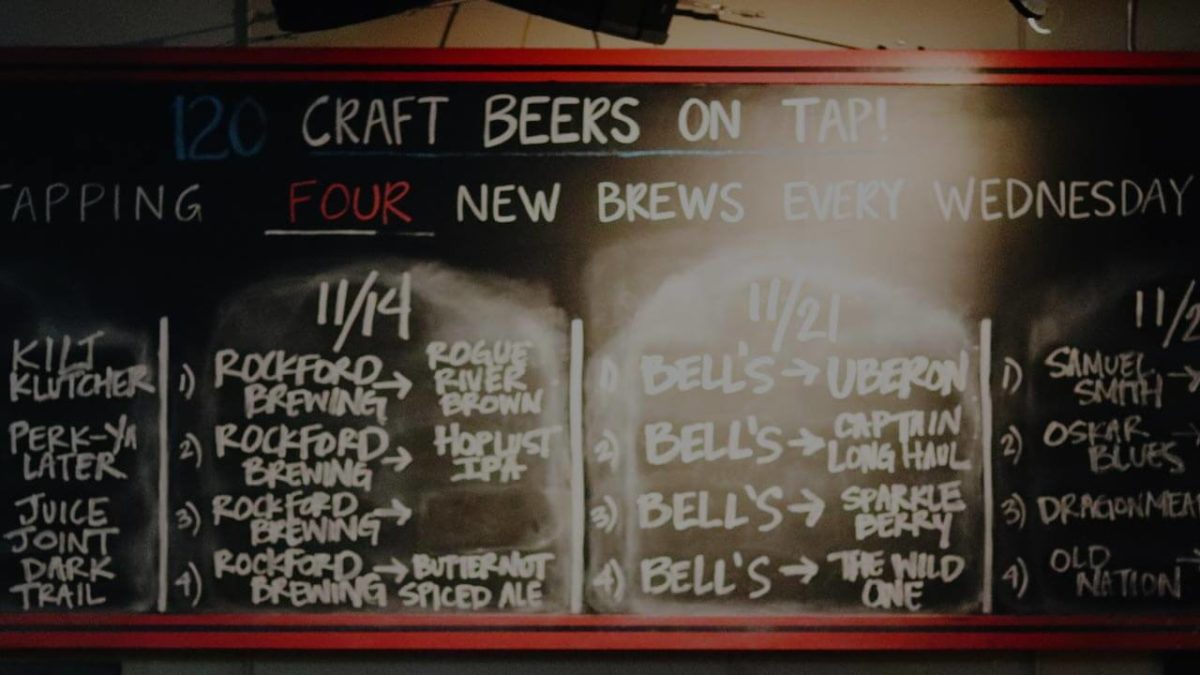 120 CRAFT BEERS ON TAP!
TAPPING FOUR NEW BREWS EVERY WEDNESDAY
KILT
KLUTCHER
PERK-YA
LATER
JUICE
JOINT
DARK
TRAIL
11/14
1) ROCKFORD
BREWING → ROGUE
RIVER
BROWN
2) ROCKFORD
BREWING → HOPLUST
IPA
3) ROCKFORD
BREWING →
4) ROCKFORD
BREWING → BUTTERNUT
SPICED ALE
11/21
1) BELL'S → UBERON
2) BELL'S → CAPTAIN
LONG HAUL
3) BELL'S → SPARKLE
BERRY
4) BELL'S → THE WILD
ONE
11/2
1) SAMUEL
SMITH →
2) OSKAR
BLUES →
3) DRAGONMEA
4) OLD
NATION →